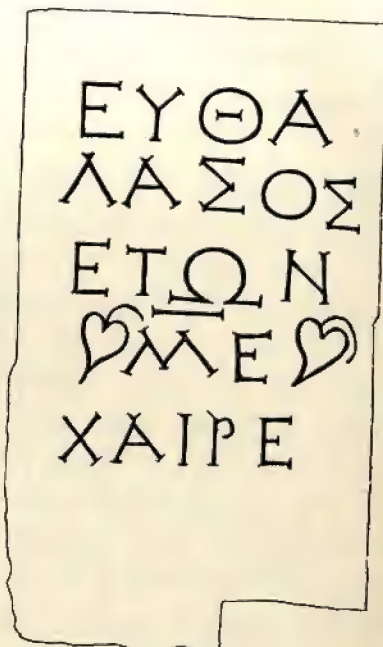 ΕΥΘΑ
ΛΑΣΟΣ
ΕΤΩΝ
ΜΕ
ΧΑΙΡΕ